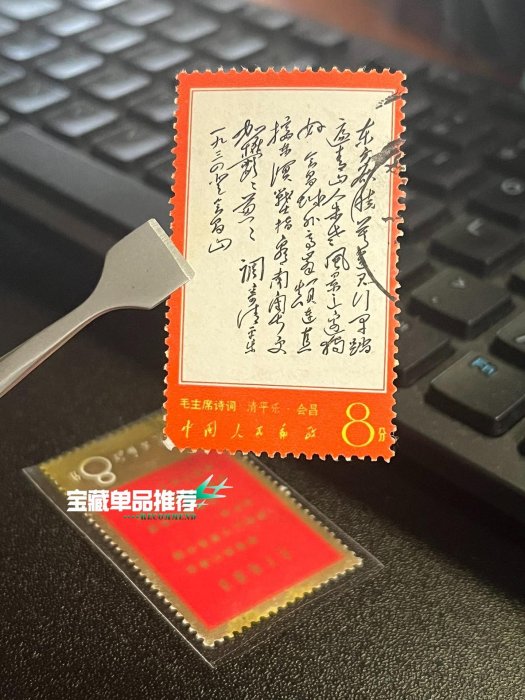 东方欲晓莫道君行早踏
遍青山人未老风景这边独
好 会昌城外高峰颠连直
接东溟战士指看南粤更
加郁々葱々 调寄清平乐
一九三四
会昌山
毛主席诗词 清平乐·会昌
中国人民邮政
8分
宝藏单品推荐
RECOMMEND